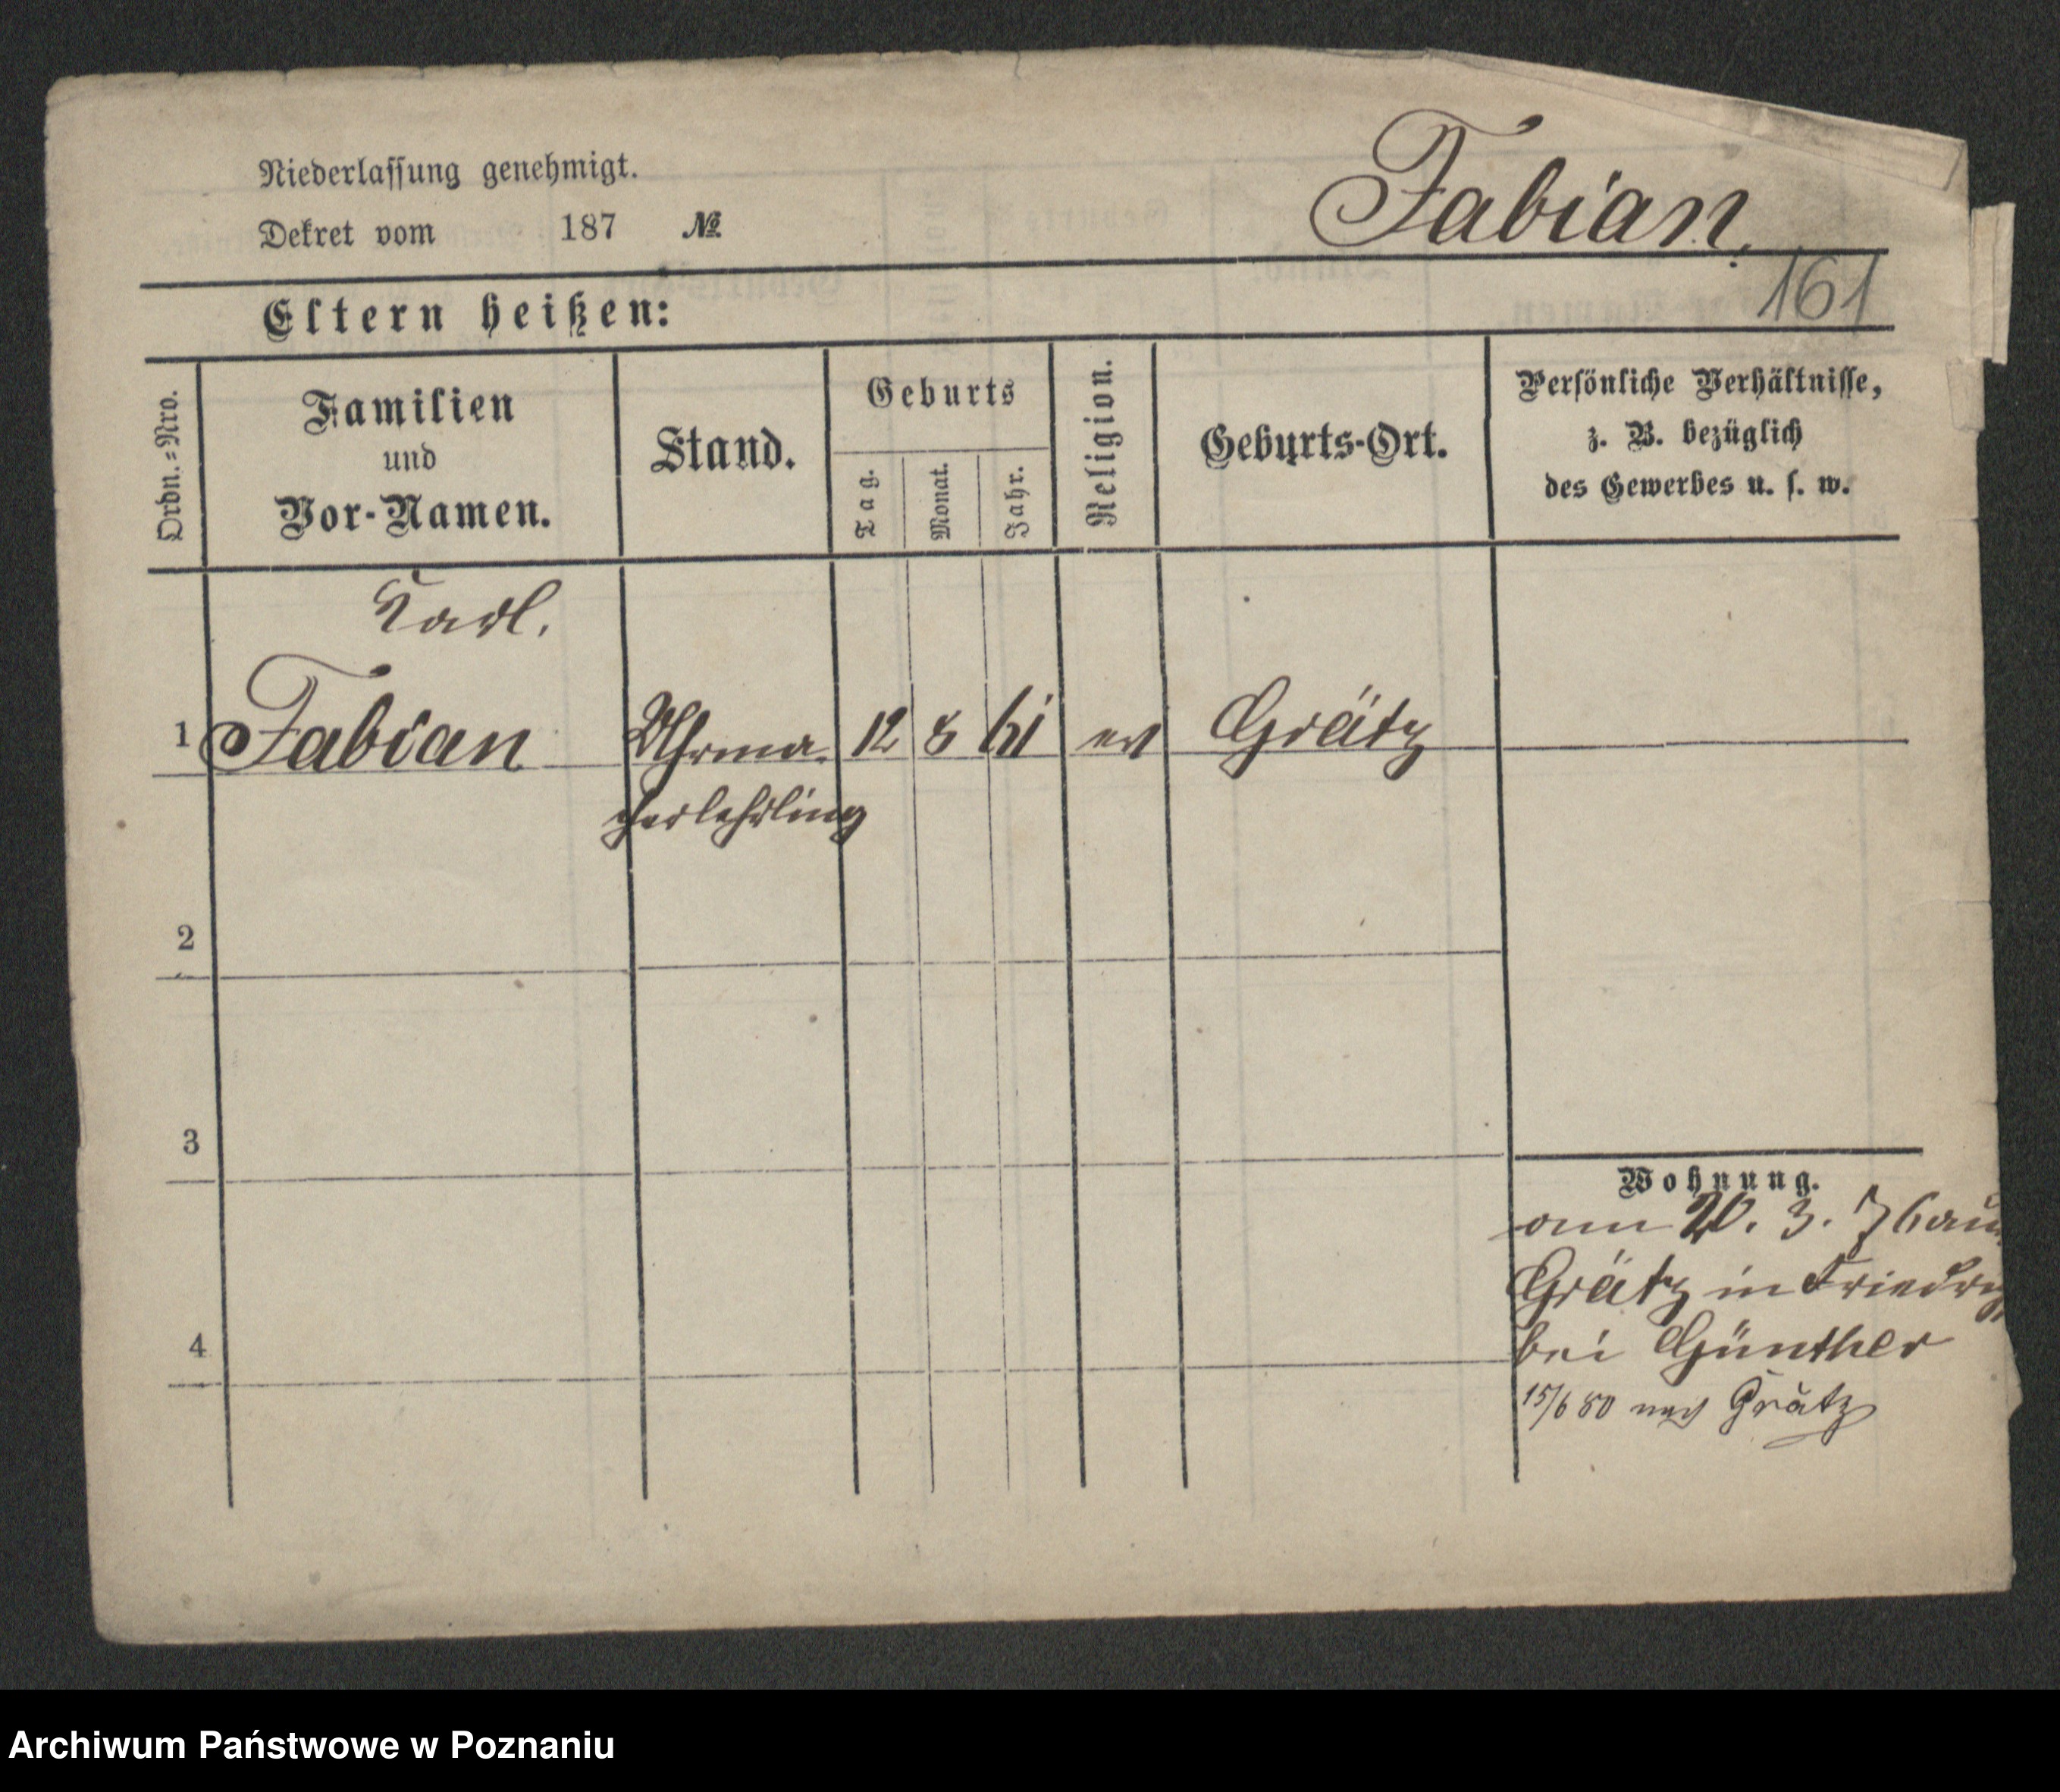 Niederlassung genehmigt.
Dekret vom 187 №
Fabian.
161
Eltern heißen:
Ordn.=Nro.
Familien
und
Vor-Namen.
Stand.
Geburts
Tag.
Monat.
Jahr.
Religion.
Geburts-Ort.
Persönliche Verhältnisse,
z. B. bezüglich
des Gewerbes u. s. w.
Karl.
1 Fabian Uhrma- 12 8 61 ev Grätz
cherlehrling
2
3
4
Wohnung.
am 20. 3. 76 aus
Grätz in
bei Günther
15/6 80 nach Grätz
Archiwum Państwowe w Poznaniu